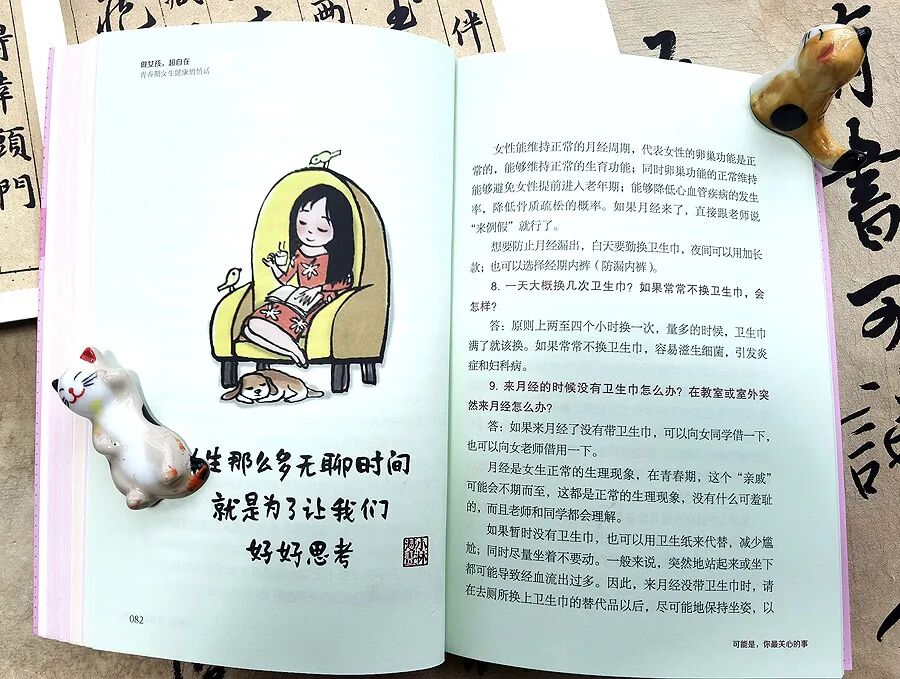 做女孩，超自在
青春期女生健康悄悄话
生那么多无聊时间
就是为了让我们
好好思考
082
女性能维持正常的月经周期，代表女性的卵巢功能是正
常的，能够维持正常的生育功能；同时卵巢功能的正常维持
能够避免女性提前进入老年期；能够降低心血管疾病的发生
率，降低骨质疏松的概率。如果月经来了，直接跟老师说
“来例假”就行了。
想要防止月经漏出，白天要勤换卫生巾，夜间可以用加长
款；也可以选择经期内裤（防漏内裤）。
8. 一天大概换几次卫生巾？如果常常不换卫生巾，会
怎样？
答：原则上两至四个小时换一次，量多的时候，卫生巾
满了就该换。如果常常不换卫生巾，容易滋生细菌，引发炎
症和妇科病。
9. 来月经的时候没有卫生巾怎么办？在教室或室外突
然来月经怎么办？
答：如果来月经了没有带卫生巾，可以向女同学借一下，
也可以向女老师借用一下。
月经是女生正常的生理现象，在青春期，这个“亲戚”
可能会不期而至，这都是正常的生理现象，没有什么可羞耻
的，而且老师和同学都会理解。
如果暂时没有卫生巾，也可以用卫生纸来代替，减少尴
尬；同时尽量坐着不要动。一般来说，突然地站起来或坐下
都可能导致经血流出过多。因此，来月经没带卫生巾时，请
在去厕所换上卫生巾的替代品以后，尽可能地保持坐姿，以
可能是，你最关心的事
頭
門
西
伴
有
書
不
讀